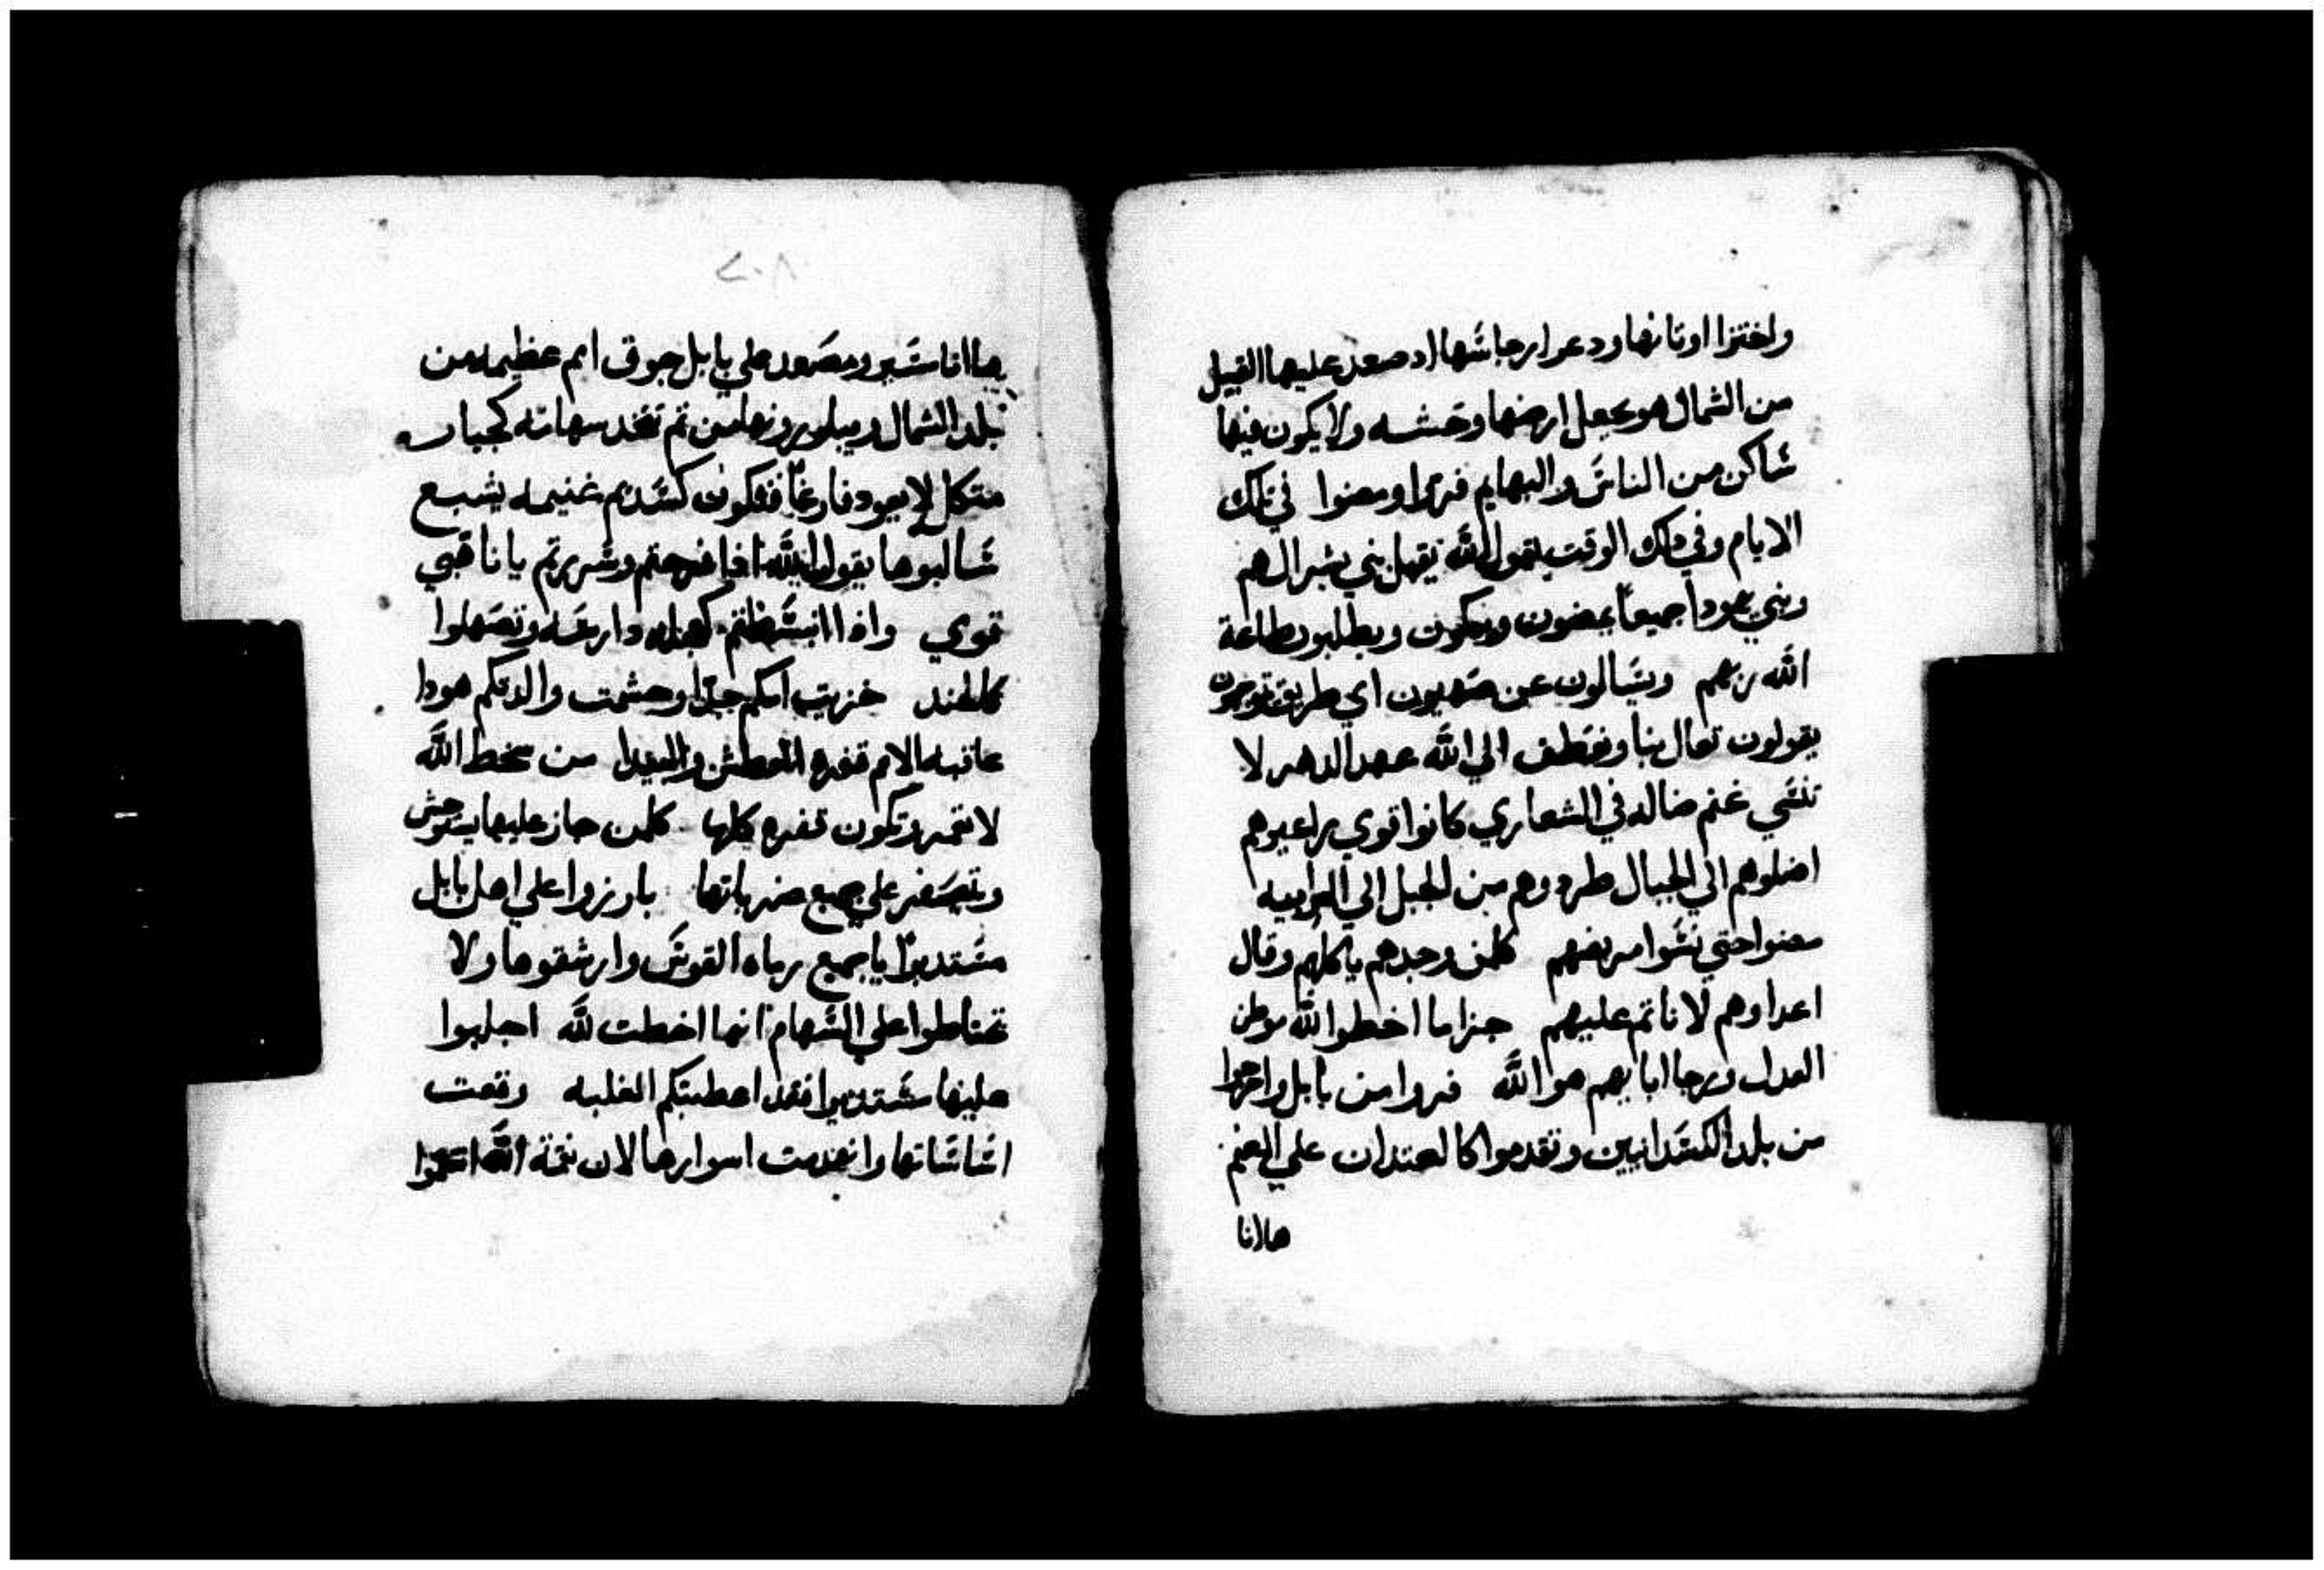 واختزا اوتانها ودعوا رجاسها اد صعد عليها القبيل
من الشمال هو يجعل ارضها وحشه ولا يكون فيها
ساكن من الناس والبهايم فروا ومضوا في تلك
الايام وفي دلك الوقت يقول الله يقبل بني يسرال هم
وبني يهودا جميعا يمضون ويبكون ويطلبون طاعة
الله ربهم ويسالون عن صهيون اي طريق توجهون
يقولون تعال بنا ونعطف الي الله عهد الدهر لا
تنسي غنم ضاله في الشعاري كانوا قوي راعيوهم
اضلوهم الي الجبال طردوهم من الجبل الي الرابيه
مضوا حتي نسوا مربضهم كلمن وجدهم ياكلهم وقال
اعداوهم لا ناتم عليهم جزا ما اخطوا لله موطن
العدل ورجا ابايهم هو الله فروا من بابل واخرجوا
من بلد الكسدانيين وتقدموا كالعتدان علي الغنم
هاانا
٢٠٨
هاانا سبير ومصعد علي بابل جوق امم عظيمه من
بلد الشمال ويبلورونها من تم تتخد سهامه كجبار
متكل لا يعود فارغا فتكون كسديم غنيمه يشبع
سالبوها يقول الله اذا فرحتم وسررتم يا ناهبي
قوي واذا انبسطتم كعجله دارسه وتصهلوا
كالهند خزيت امكم جدا وحشمت والدتكم هودا
عاقبه الامم قفره العطش والبيدا من سخط الله
لا تعمر وتكون قفره كلها كلمن جاز عليها يتوحش
ويصفر علي جميع ضرباتها بارزوا علي اهل بابل
مستديرا يا جميع رماه القوس وارشقوها ولا
تحتاطوا علي السهام انها اخطت لله اجلبوا
عليها مستديرا فقد اعطتكم الغلبه وقعت
اساساتها وانهدمت اسوارها لان نقمة الله انتقموا